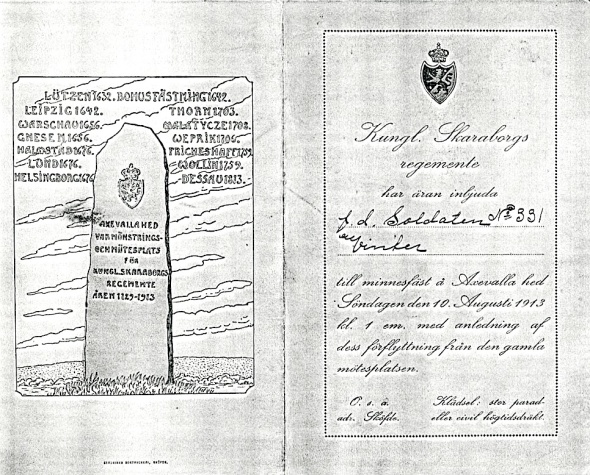 LÜTZEN 1632. BOHUS FÄSTNING 1642.
LEIPZIG 1642. THORN 1703.
WARSCHAU 1656. MALATYCZE 1708.
GNESEN 1656. WEPRIK 1706.
HALMSTAD 1676. FRICHES HAFF 1759.
LUND 1676. WOLLIN 1759.
HELSINGBORG 1676. DESSAU 1813.
AXEVALLA HED
VAR MÖNSTRINGS-
OCH MÖTESPLATS
FÖR
KUNGL. SKARABORGS
REGEMENTE
ÅREN 1729-1913
Kungl. Skaraborgs
regemente
har äran inbjuda
f. d. Soldaten No 331
Winter
till minnesfäst å Axevalla hed
Söndagen den 10. Augusti 1913
kl. 1 em. med anledning af
dess förflyttning från den gamla
mötesplatsen.
O. s. a. Klädsel: stor parad-
adr. Sköfde. eller civil högtidsdräkt.